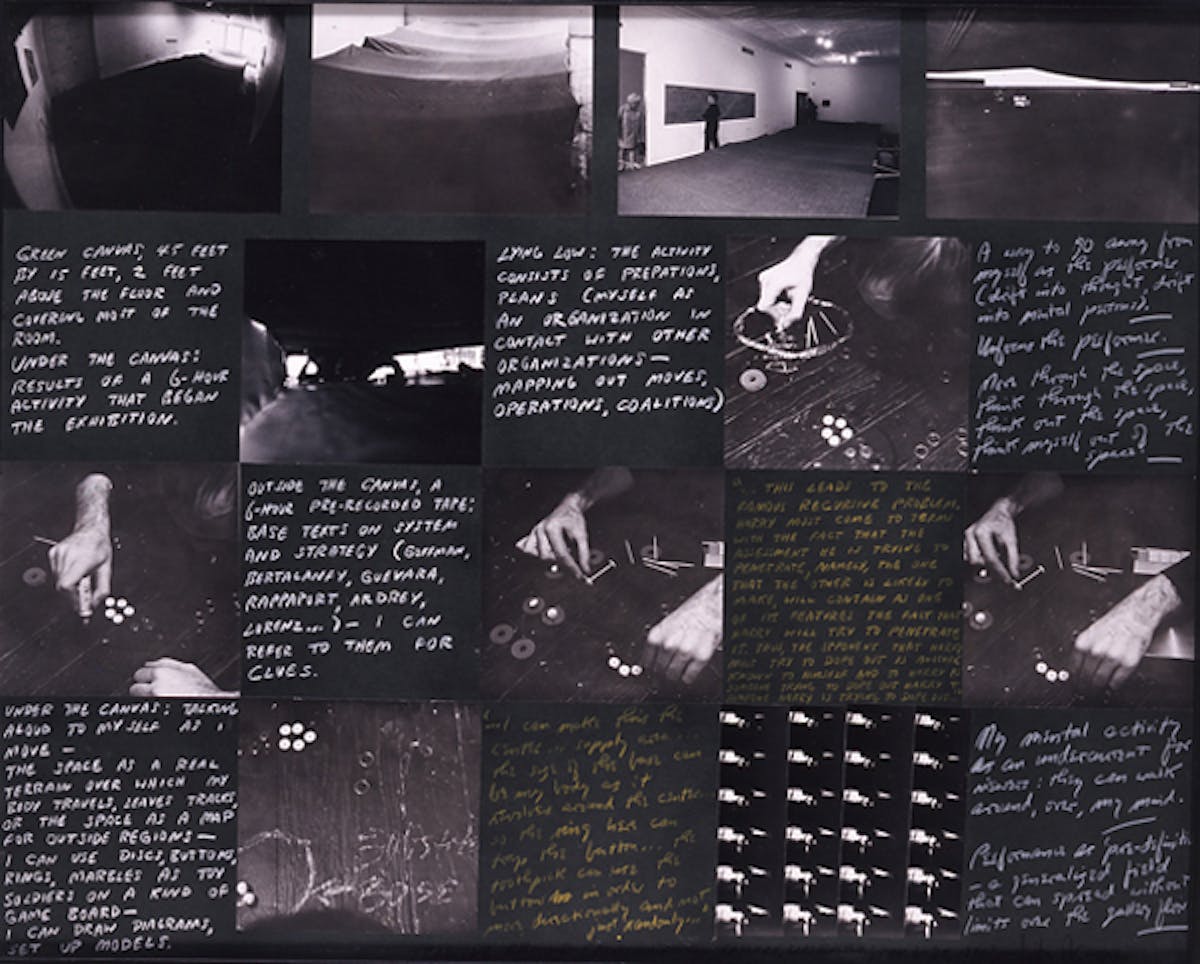 GREEN CANVAS, 45 FEET
BY 15 FEET, 2 FEET
ABOVE THE FLOOR AND
COVERING MOST OF THE
ROOM.
UNDER THE CANVAS:
RESULTS OF A 6-HOUR
ACTIVITY THAT BEGAN
THE EXHIBITION.
LYING LOW: THE ACTIVITY
CONSISTS OF PREPATIONS,
PLANS (MYSELF AS
AN ORGANIZATION IN
CONTACT WITH OTHER
ORGANIZATIONS—
MAPPING OUT MOVES,
OPERATIONS, COALITIONS)
A way to go away from
myself as the performer
(drift into thought, drift
into mental patterns).
the performer.
Move through the space,
think through the space,
think out the space,
think myself out of the
space.
OUTSIDE THE CANVAS, A
6-HOUR PRE-RECORDED TAPE:
BASE TEXTS ON SYSTEM
AND STRATEGY (GOFFMAN,
BERTALANFY, GUEVARA,
RAPPAPORT, ARDREY,
LORENZ...) — I CAN
REFER TO THEM FOR
CLUES.
"... THIS LEADS TO THE
FAMOUS RECURSIVE PROBLEM.
HARRY MUST COME TO TERMS
WITH THE FACT THAT THE
ASSESSMENT HE IS TRYING TO
PENETRATE, NAMELY, THE ONE
THAT THE OTHER IS LIKELY TO
MAKE, WILL CONTAIN AS ONE
OF ITS FEATURES THE FACT THAT
HARRY WILL TRY TO PENETRATE
IT. THUS, THE OPPONENT THAT HARRY
MUST TRY TO DOPE OUT IS ANOTHER
KNOWN TO HIMSELF AND TO HARRY AS
SOMEONE TRYING TO DOPE OUT HARRY
SOMEONE HARRY IS TRYING TO DOPE OUT..."
UNDER THE CANVAS: TALKING
ALOUD TO MYSELF AS I
MOVE —
THE SPACE AS A REAL
TERRAIN OVER WHICH MY
BODY TRAVELS, LEAVES TRACES,
OR THE SPACE AS A MAP
FOR OUTSIDE REGIONS—
I CAN USE DISCS, BUTTONS,
RINGS, MARBLES AS TOY
SOLDIERS ON A KIND OF
GAME BOARD—
I CAN DRAW DIAGRAMS,
SET UP MODELS.
BASE
I can make this the
supply area...
the size of the base can
be my body as it
revolves around the center...
so the ring here can
the button... the
toothpick can use the
button in order to
move directionally and not
just randomly...
My mental activity
as an undercurrent for
: they can walk
around, over, my mind.
Performance as pre-definition
— a generalized field
that can spread without
limits over the gallery floor